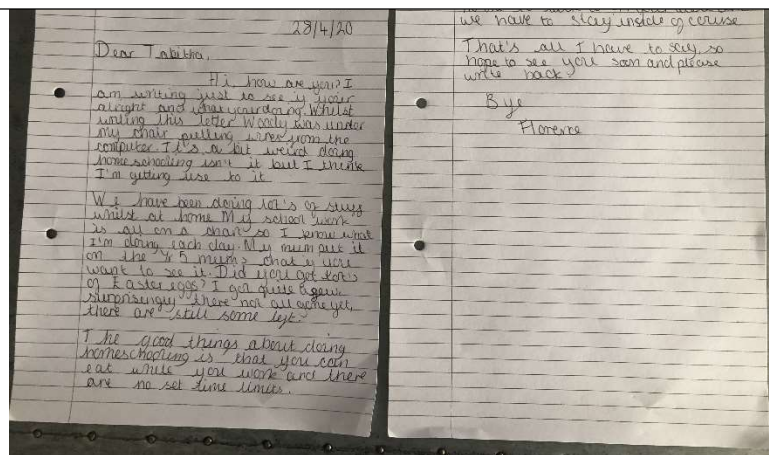 28/4/20
Dear Tabitha,
Hi how are you? I
am writing just to see if your
alright and what your doing. Whilst
writing this letter Woody was under
my chair pulling wires from the
computer. It's a bit weird doing
homeschooling isn't it but I think
I'm getting use to it
We have been doing lot's of stuff
whilst at home My school work
is all on a chart so I know what
I'm doing each day. My mum put it
on the Yr 5 mums chat if you
want to see it. Did you get lot's
of Easter eggs? I got quite a few
surprisingly there not all gone yet,
there are still some left.
The good things about doing
homeschooling is that you can
eat while you work and there
are no set time limits.
we have to stay inside of course
That's all I have to say, so
hope to see you soon and please
write back
Bye
Florence